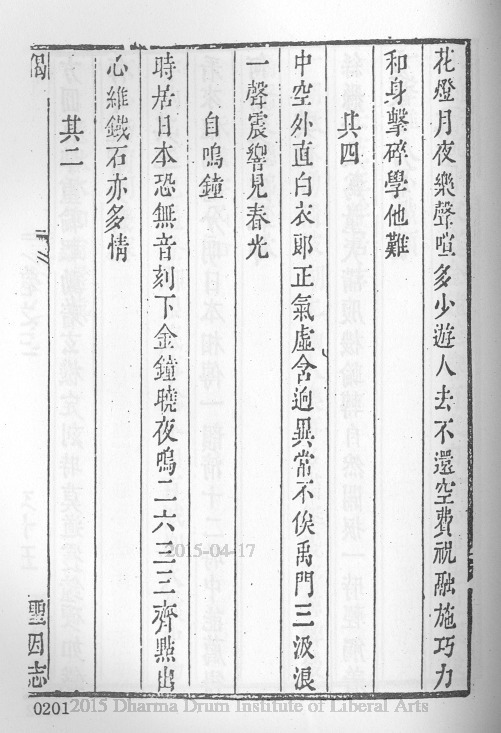 花燈月夜樂聲喧多少遊人去不還空費祝融施巧力
和身擊碎學他難
其四
中空外直白衣郎正氣虛含迥異常不俟禹門三汲浪
一聲震響見春光
自鳴鐘
時居日本恐無音刻下金鐘曉夜鳴二六三三齊點出
心維鐵石亦多情
其二
偈
聖因志
0201
2015-04-17
2015 Dharma Drum Institute of Liberal Arts